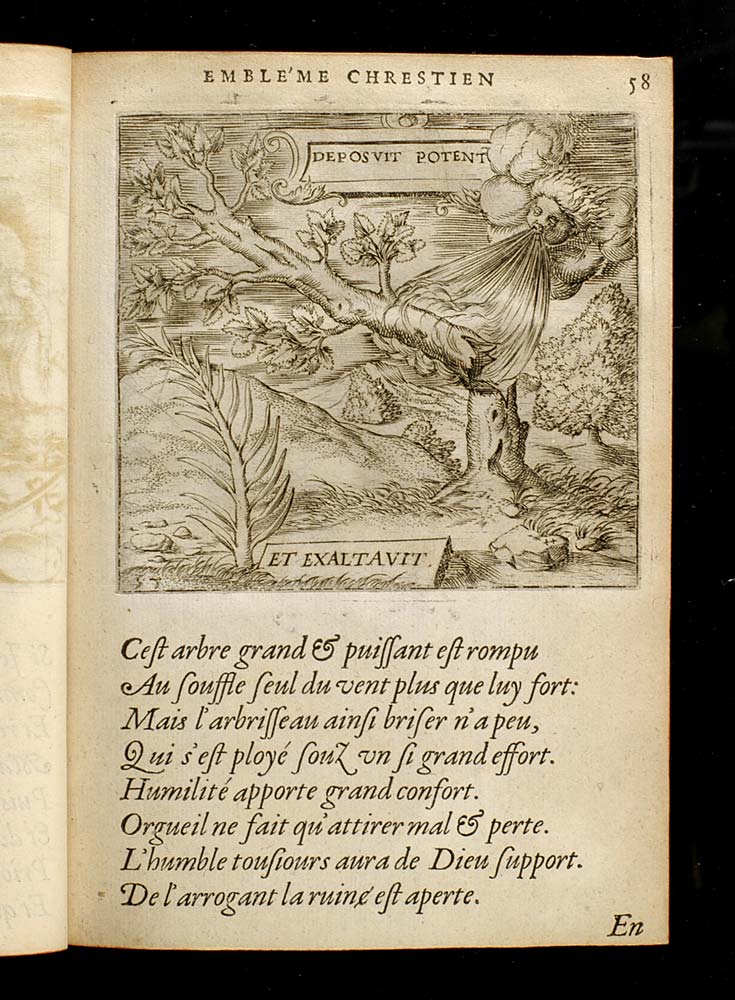 EMBLE'ME CHRESTIEN 58
DEPOSVIT POTENT
ET EXALTAVIT.
53
Cest arbre grand & puiſſant eſt rompu
Au ſouffle ſeul du vent plus que luy fort:
Mais l'arbriſſeau ainſi briſer n'a peu,
Qui s'eſt ployé ſouz vn ſi grand effort.
Humilité apporte grand confort.
Orgueil ne fait qu'attirer mal & perte.
L'humble touſiours aura de Dieu ſupport.
De l'arrogant la ruine eſt aperte.
En